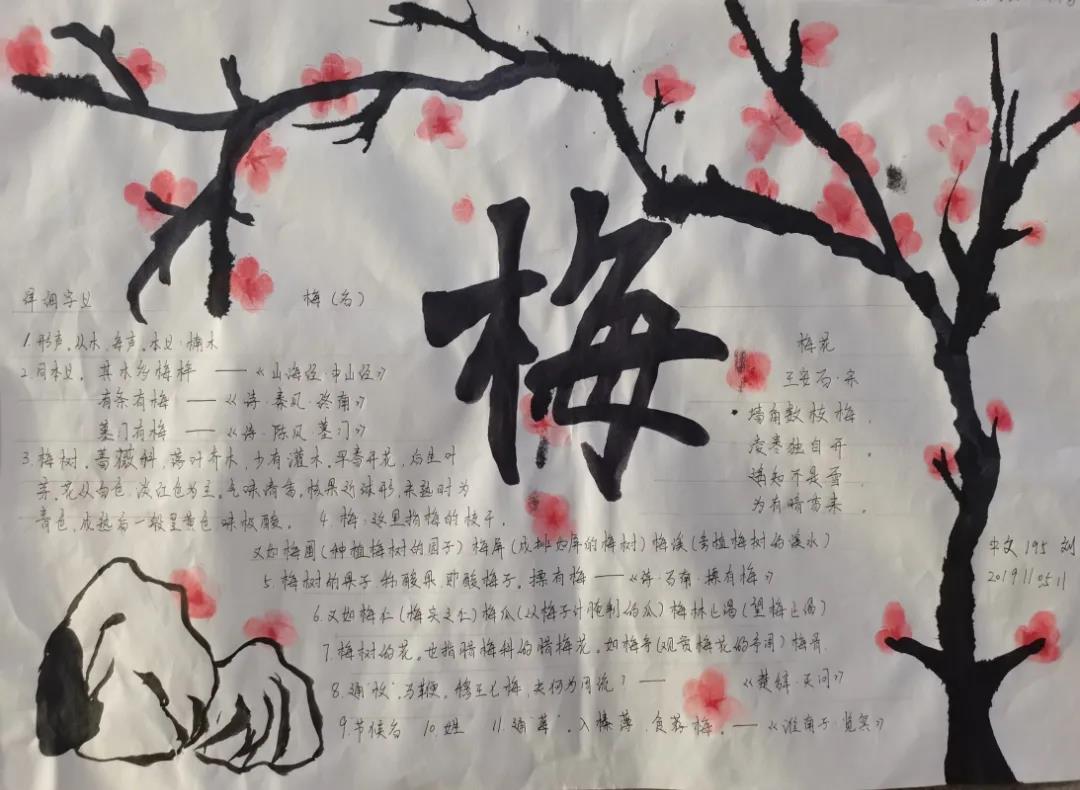 梅
详细字义
梅(名)
1.形声。从木,每声。本义:楠木
2.同本义。其木多梅梓 ——《山海经·中山经》
有条有梅 ——《诗·秦风·终南》
墓门有梅 ——《诗·陈风·墓门》
3.梅树,蔷薇科,落叶乔木,少有灌木。早春开花,后生叶
芽,花以白色、淡红色为主,气味清香。核果近球形,未熟时为
青色,成熟后一般呈黄色 味极酸。 4.梅:这里指梅的枝干。
又如梅圃(种植梅树的园子)梅屏(成排如屏的梅树)梅溪(旁植梅树的溪水)
5.梅树的果子 称酸果,即酸梅子。摽有梅 ——《诗·召南·摽有梅》
6.又如梅仁(梅实之仁)梅瓜(以梅子汁腌制的瓜)梅林止渴(望梅止渴)
7.梅树的花。也指腊梅科的腊梅花。如梅亭(观赏梅花的亭阁)梅骨
8.通“枚”,马鞭。穆王巧梅,夫何为周流? —— 《楚辞·天问》
9.节候名 10.姓 11.通 入榛薄,食荐梅。——《淮南子·览冥》
梅花
王安石·宋
墙角数枝梅,
凌寒独自开。
遥知不是雪,
为有暗香来。
中文195 刘
2019 11 05 11